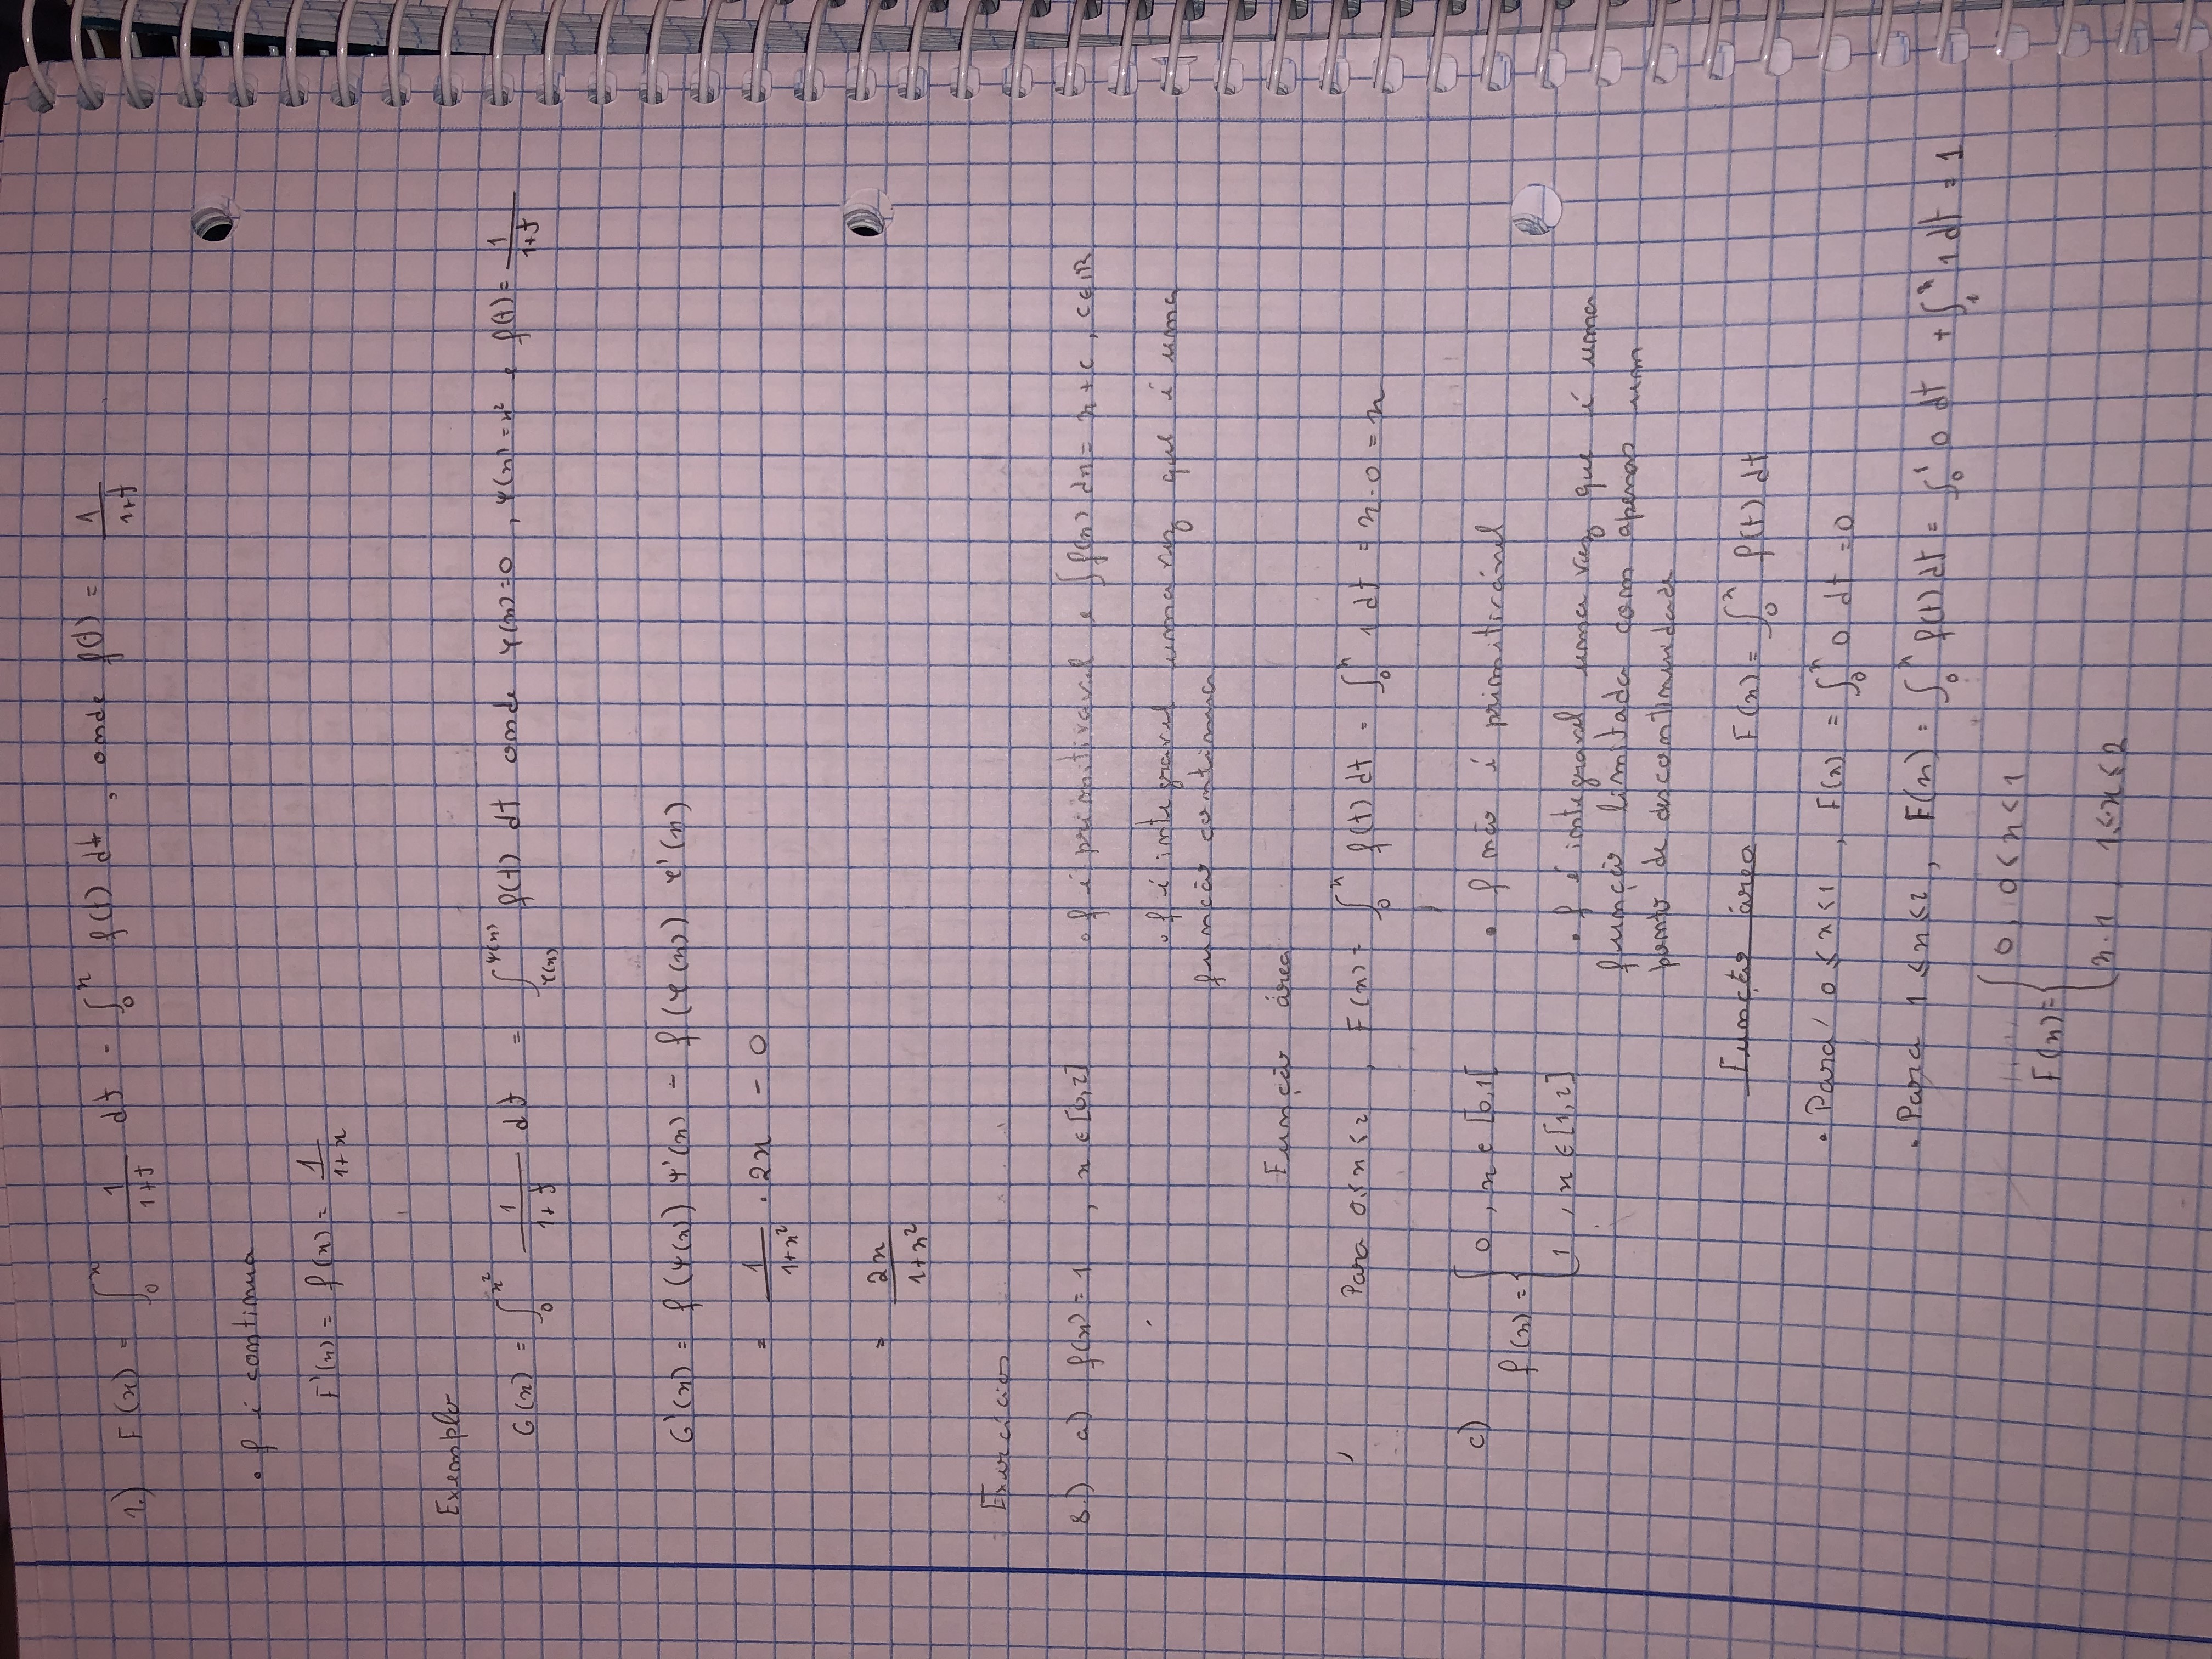 1.) F(x) = ∫₀ˣ 1/(1+t) dt = ∫₀ˣ f(t) dt , onde f(t) = 1/(1+t)
• f é continua
F'(x) = f(x) = 1/(1+x)
Exemplo
G(x) = ∫₀^(x²) 1/(1+t) dt = ∫_φ(x)^ψ(x) f(t) dt onde φ(x)=0 , ψ(x)=x² e f(t)= 1/(1+t)
G'(x) = f(ψ(x)) ψ'(x) - f(φ(x)) φ'(x)
= 1/(1+x²) . 2x - 0
= 2x/(1+x²)
Exercicios
8.) a) f(x) = 1 , x ∈ [0,2] • f é primitivavel e ∫f(x) dx = x + c , c∈IR
• f é integravel uma vez que é uma
função continua
Função área
Para 0 ≤ x ≤ 2 , F(x) = ∫₀ˣ f(t) dt = ∫₀ˣ 1 dt = x - 0 = x
c) f(x) = { 0 , x ∈ [0,1[ • f não é primitivável
1 , x ∈ [1,2] • f é integravel uma vez que é uma
função limitada com apenas um
ponto de descontinuidade
Função área F(x) = ∫₀ˣ f(t) dt
• Para 0 ≤ x < 1 , F(x) = ∫₀ˣ 0 dt = 0
• Para 1 ≤ x ≤ 2 , F(x) = ∫₀ˣ f(t) dt = ∫₀¹ 0 dt + ∫₁ˣ 1 dt = 1
F(x) = { 0 , 0 < x < 1
x - 1 1 ≤ x ≤ 2